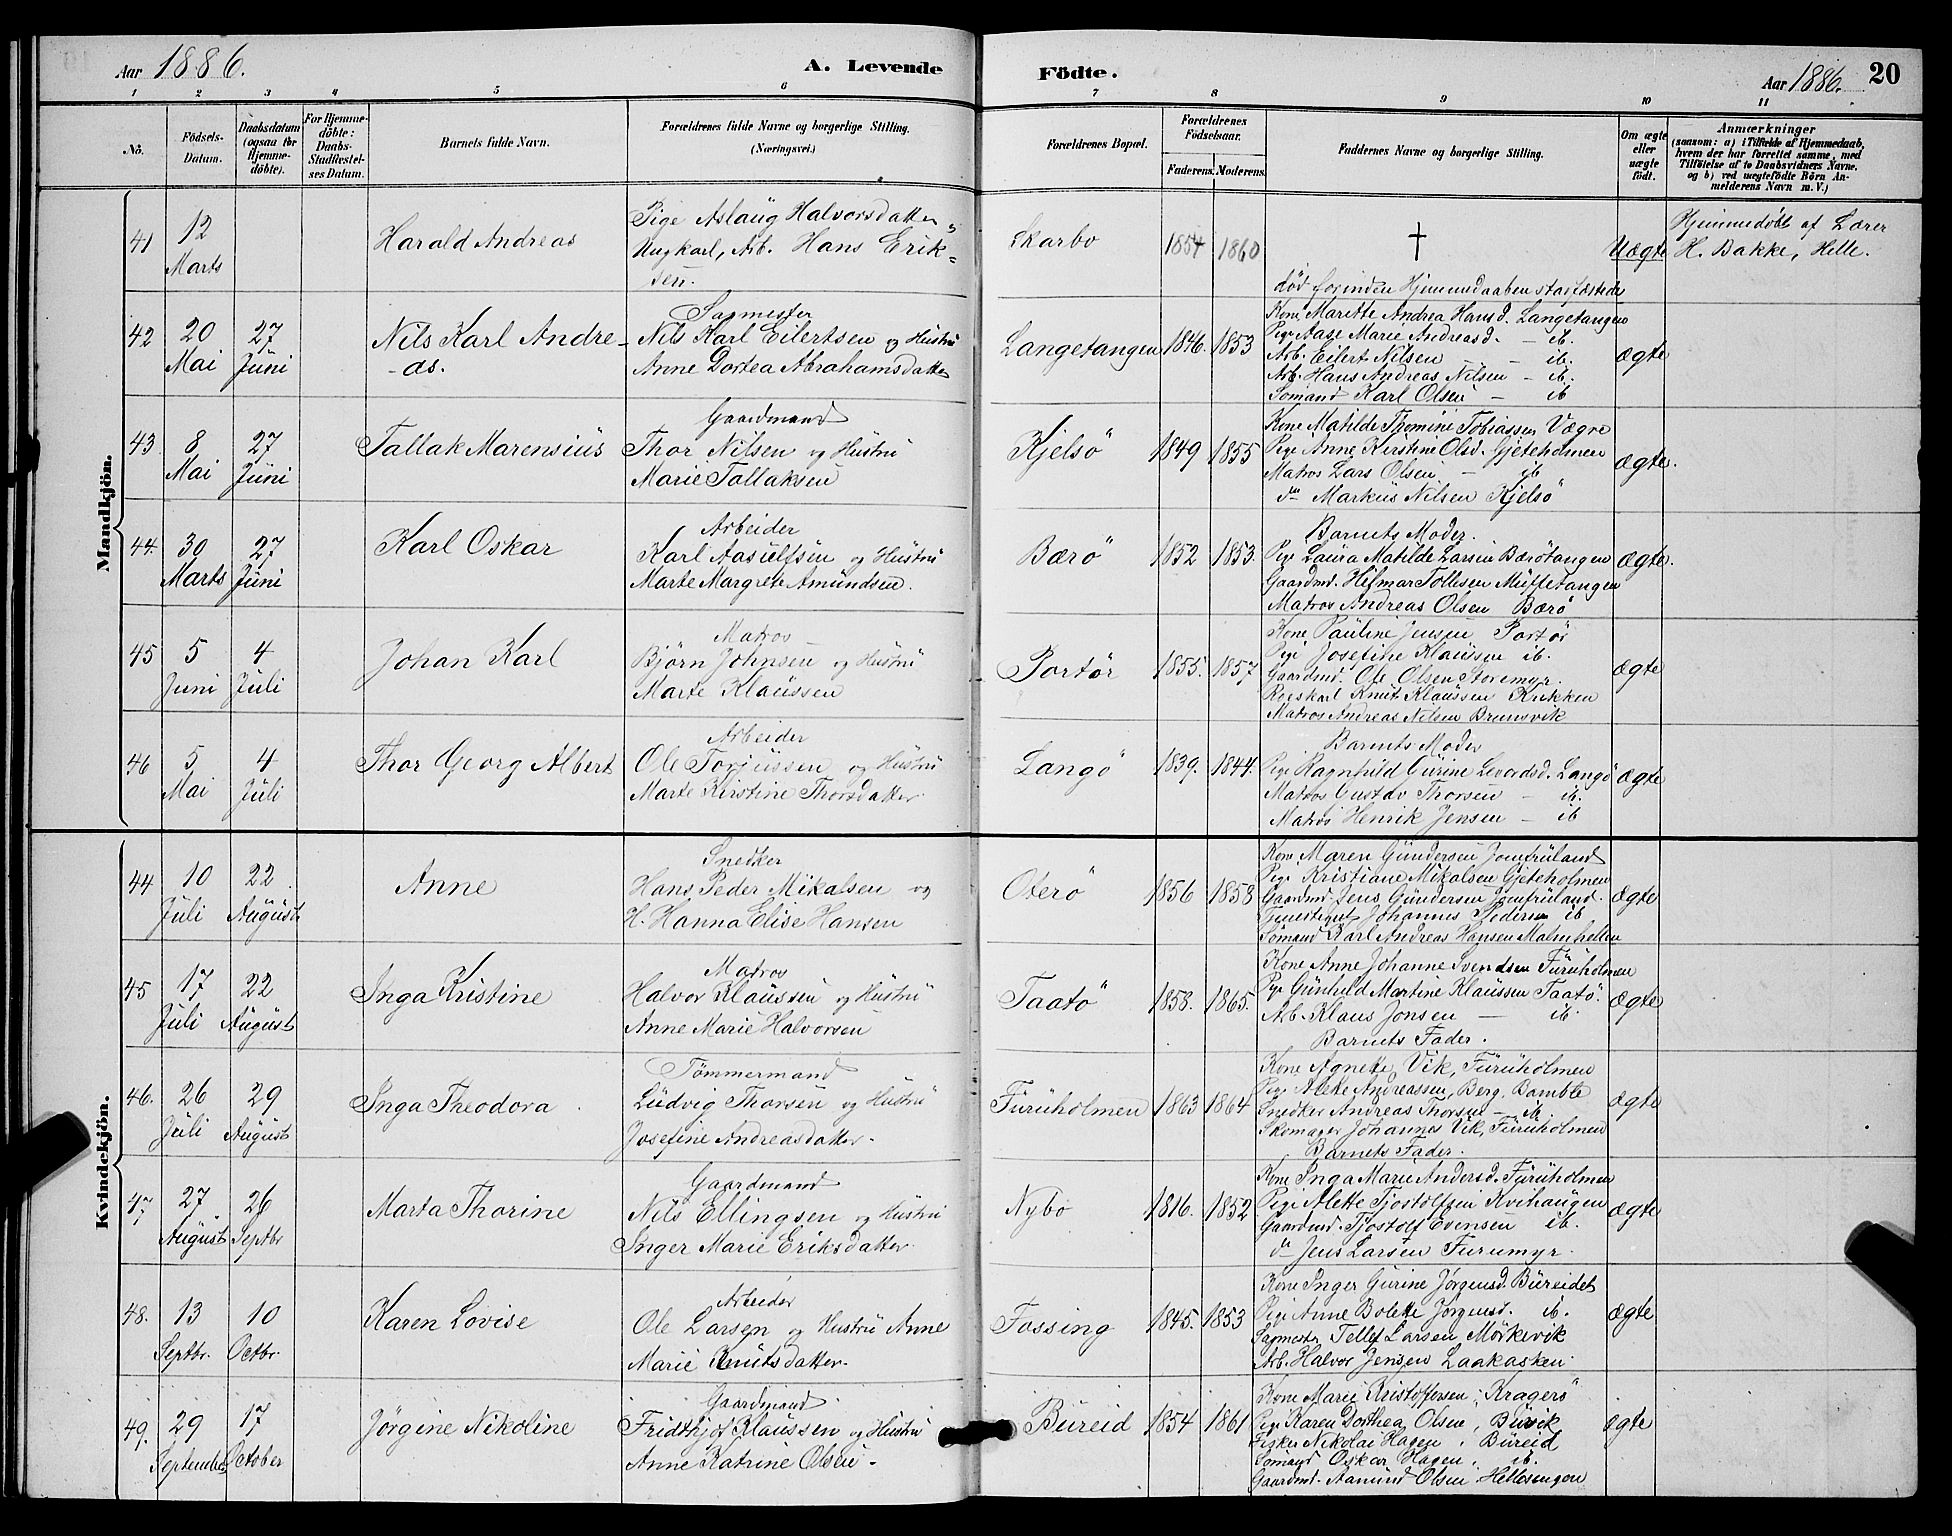 Aar 1886. A. Levende Födte. Aar 1886. 20
1 2 3 4 5 6 7 8 9 10 11
No. Födsels-Datum. Daabsdatum (ogsaa for Hjemme-döbte). For Hjemme-döbte: Daabs-Stadfæstel-ses Datum. Barnets fulde Navn. Forældrenes fulde Navne og borgerlige Stilling. (Næringsvei.) Forældrenes Bopæl. Forældrenes Födselsaar. Faderens. Moderens. Faddernes Navne og borgerlige Stilling. Om ægte eller uægte födt. Anmærkninger (saasom: a) i Tilfælde af Hjemmedaab, hvem der har forrettet samme, med Tilföielse af to Daabsvidners Navne, og b) ved uægtefödte Börn An-melderens Navn m. V.)
Mandkjön.
41 12 Marts Harald Andreas
Pige Aslaug Halvorsdatter
Ungkarl, Arb. Hans Erik-
sen.
Skarbo 1854 1860 † Uægte
Hjemmedöbt af Lærer
H. Bakke, Helle.
död forinden Hjemmedaaben stadfæstede
42 20 Mai 27 Juni Nils Karl Andre-
-as.
Sagmester
Nils Karl Eilertsen og Hustru
Anne Dortea Abrahamsdatter
Langetangen 1846. 1853 ægte
Kone Maritte Andrea Hansd. Langetangen
Pige Aase Marie Andreasd. - ib.
Arb. Eilert Nilsen - ib.
Arb. Hans Andreas Nilsen - ib.
Sömand Karl Olsen - ib
43 8 Mai 27 Juni Tallak Marensius
Gaardmand
Thor Nilsen og Hustru
Marie Tallaksen
Kjelsö 1849 1855 ægte.
Kone Mathilde Thomine Tobiassen Vægre
Pige Anne Kirstine Olsd. Gjeteholmen
Matros Lars Olsen - ib
do Markus Nilsen Kjelsö
44. 30 Marts 27 Juni Karl Oskar
Arbeider
Karl Aasulfsen og Hustru
Marte Margrete Amundsen.
Bærö 1852 1853. ægte.
Barnets Moder.
Pige Laura Matilde Larsen Bærötangen
Gaardmd. Hilmar Tollefsen Müffetangen
Matros Andreas Olsen Bærö
45 5 Juni 4 Juli Johan Karl
Matros
Björn Johnsen og Hustru
Marte Klaussen
Portör 1855. 1857 ægte
Kone Pauline Jensen Portör
Pige Josefine Klaussen ib.
Gaardmd. Ole Olsen Storemyr.
Knut Klaussen Krikken
Matros Andreas Nilsen Brunsvik
46 5 Mai 4 Juli Thor Georg Albert
Arbeider
Ole Torjussen og Hustru
Marte Kirstine Thorsdatter
Langö 1839. 1844. ægte
Barnets Moder
Pige Ragnhild Gurine Levordsd. Langö
Matros Gustav Thorsen - ib.
Matros Henrik Jensen - ib
Kvindekjön.
44 10 Juli 22 August Anne
Snedker
Hans Peder Mikalsen og
H. Hanna Elise Hansen
Oterö 1856 1858 ægte
Kone Maren Gundersen Jomfruland
Pige Kristiane Mikalsen Gjeteholmen
Gaardmd. Jens Gundersen Jomfruland.
Tjenestegut Johannes Pedersen ib
Sömand Karl Andreas Hansen Malmhellen
45 17 Juli 22 August Inga Kristine
Matros
Halvor Klaussen og Hustru
Anne Marie Halvorsen
Taatö 1858. 1865. ægte
Kone Anne Johanne Svendsen Furuholmen
Pige Gunhild Martine Klaussen Taatö.
Arb. Klaus Jonsen - ib.
Barnets Fader.
46. 26 Juli 29 August Inga Theodora
Tömmermand
Ludvig Thorsen og Hustru
Josefine Andreasdatter.
Furuholmen 1863 1864 ægte
Kone Agnete Vik, Furuholmen
Pige Alette Andreassen, Berg, Bamble
Snedker Andreas Thorsen - ib
Skomager Johannes Vik, Furuholmen
Barnets Fader.
47 27. August 26 Septbr Marta Thorine
Gaardmand
Nils Ellingsen og Hustru
Inger Marie Eriksdatter.
Nybo 1816. 1852 ægte
Kone Inga Marie Andersd. Furuholmen
Pige Alette Tjostolfsen Kvihaugen
Gaardmd. Tjostolf Evensen ib.
do Jens Larsen Furumyr.
48. 13 Septbr. 10 Octbr. Karen Lovise
Arbeider
Ole Larsen og Hustru Anne
Marie Knutsdatter.
Fossing 1845. 1853 ægte
Kone Inger Gurine Jörgensd. Bureidet
Pige Anne Bolette Jörgensd. ib.
Sagmester Tellef Larsen Mörkevik
Arb. Halvor Jensen Laakasken
49. 29 September 17 October Jörgine Nikoline
Gaardmand
Fridthjof Klaussen og Hustru
Anne Katrine Olsen.
Bureid 1854 1861 ægte
Kone Marie Kristoffersen, Kragerö
Pige Karen Dorthea Olsen, Burvik
Fisker Nikolai Hagen, Bureid
Sömand Oskar Hagen, ib.
Gaardmd. Aamund Olsen Hellesengen